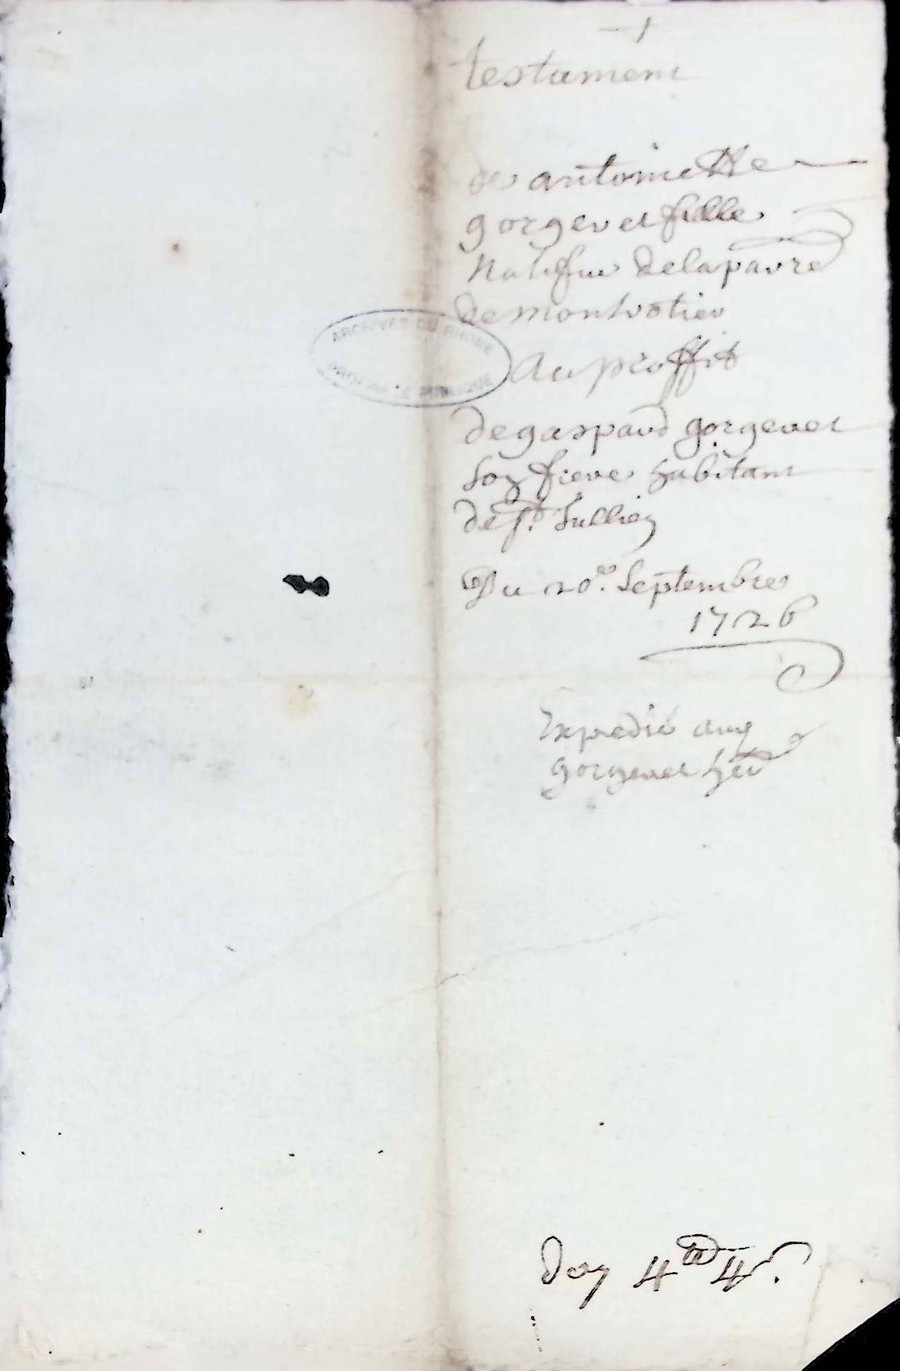 testament
de antoinette
gorgeret fillie
Natifue delaparre
de montrotier
ARCHIVES DU RHONE
PROPRIÉTÉ PUBLIQUE
Au proffit
de gaspard gorgeret
Son frere habitant
de St. Jullien
Du 20e. Septembre
1726
Expedié aud
gorgeret her